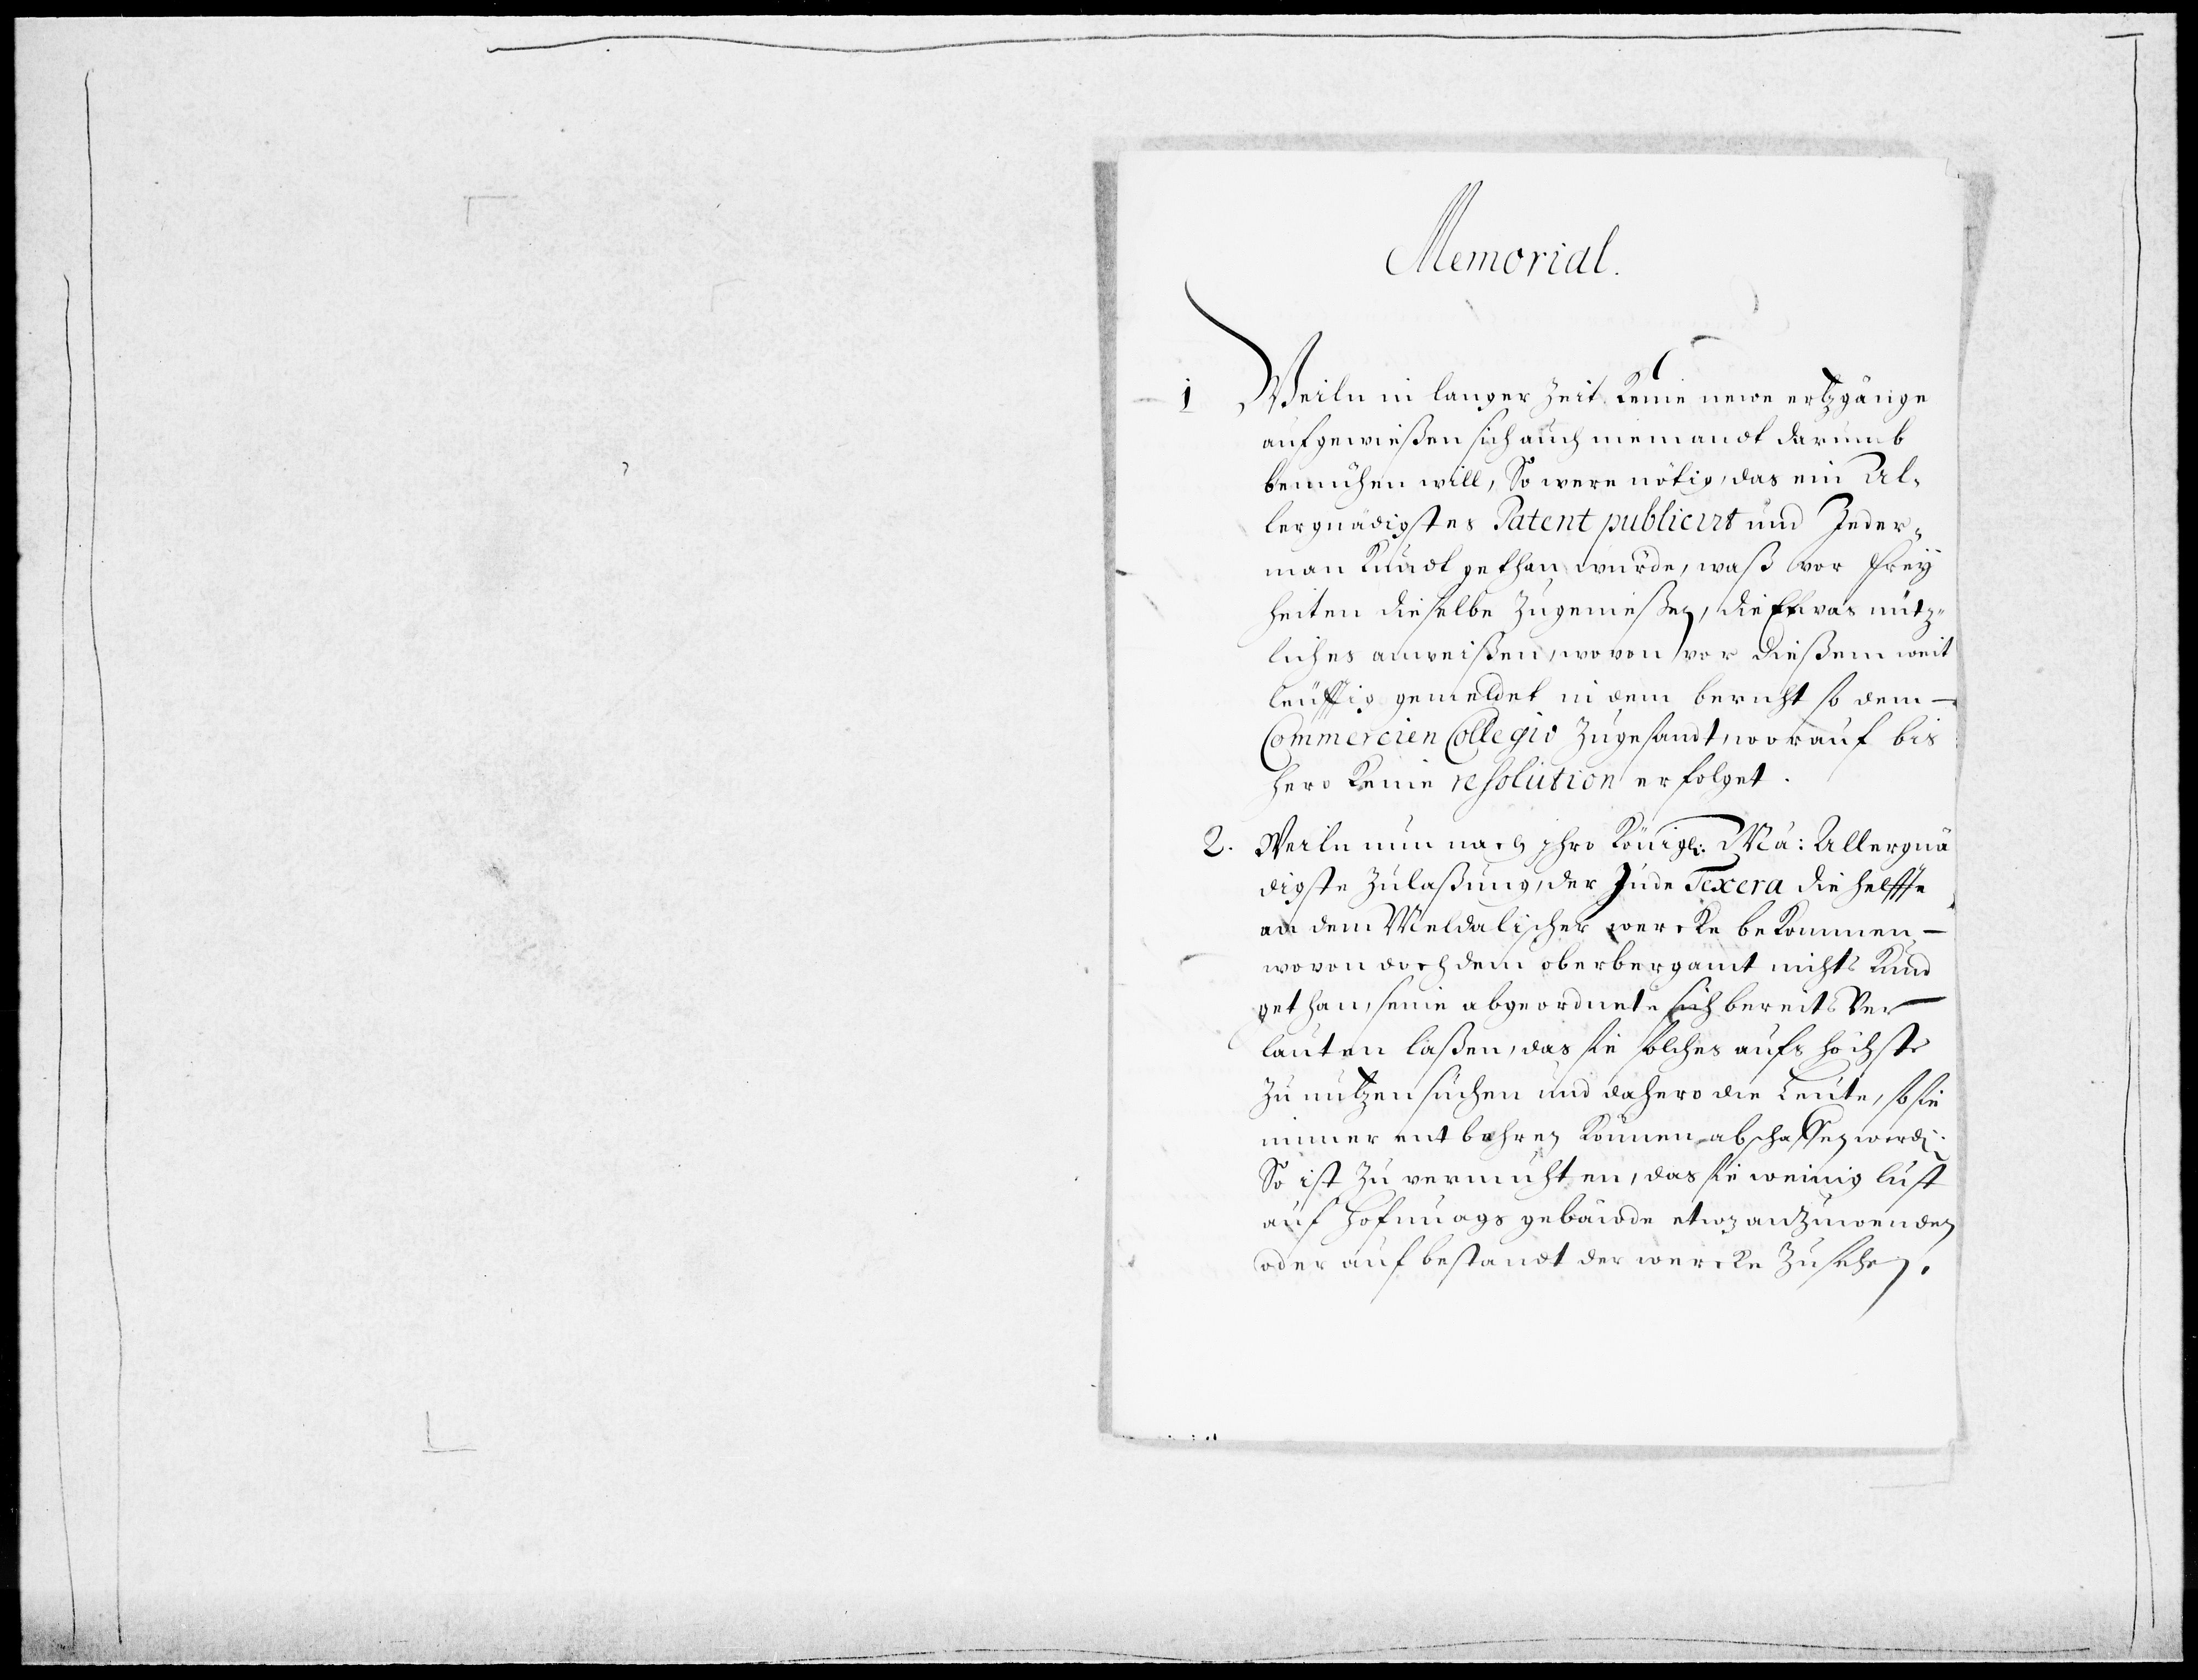 Memorial.
1 Weiln in langer Zeit keine newe ertzgänge
aufgewießen sich auch niemandt darumb
bemühen will, So were nötig, das ein Al-
lergnädigstes Patent publicirt und Jeder-
man Kundt gethan würde, waß vor frey
heiten dieselbe Zugenießen, die Etwas nütz-
liches anweißen, wovon vor dießem weit
leufftig gemeldet in dem bericht so dem
Commercien Collegio Zugesandt, worauf bis
hero keine resolution erfolget.
2. Weiln nun nach ihro Königl: Ma: Allergnä
digste Zulaßung, der Jude Texera die helffte
an dem Meldalischer wercke bekommen
wovon doch dem oberbergamt nichts Kund
gethan, seine abgeordnete sich bereits Ver
lauten laßen, das sie solches aufs höchste
Zu nutzen suchen und dahero die Leute, so sie
immer entbehren können abschaffen werd:
So ist Zu vermuhten, das sie weinig lust
auf hofnungs gebäude etwz anzuwenden
oder auf bestandt der wercke Zusehen.